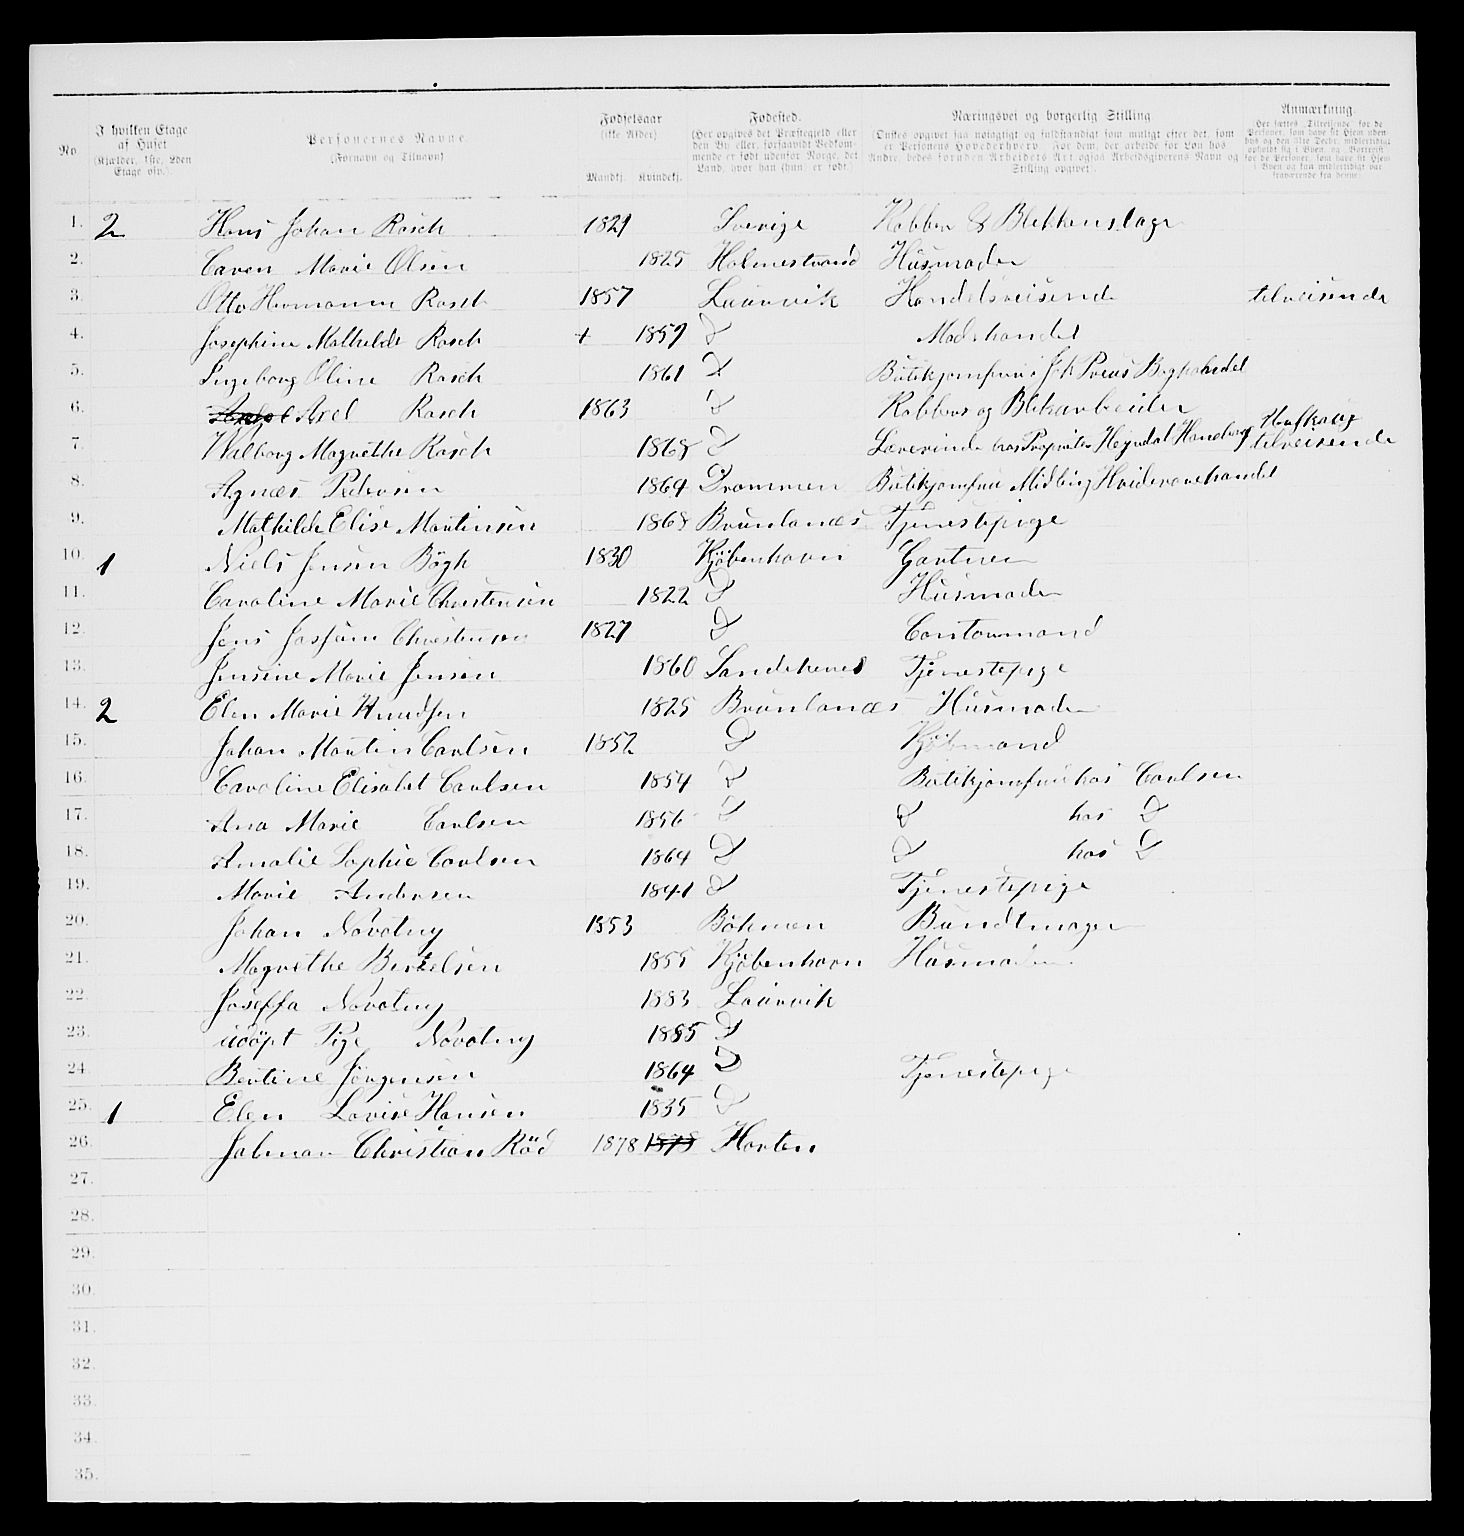 No.
I hvilken Etage af Huset (Kjælder, 1ste, 2den Etage osv.).
Personernes Navne. (Fornavn og Tilnavn)
Fødselsaar (ikke Alder) Mandkj. Kvindekj.
Fødested. (Her opgives det Præstegjeld eller den By eller, forsaavidt Vedkommende er født udenfor Norge, det Land, hvor han (hun) er født.)
Næringsvei og borgerlig Stilling (Ønskes opgivet saa nøiagtigt og fuldstændigt som muligt efter det, som er Personens Hovederhverv. For dem, der arbeide for Løn hos Andre, bedes foruden Arbeidets Art ogsaa Arbeidsgiverens Navn og Stilling opgivet.)
Anmærkning.
1. 2 Hans Johan Rasch 1821 Sverige Kobber & Blekkenslager
2. Caren Marie Olsen 1825 Holmestrand Husmoder
3. Otto Hermann Rasch 1857 Laurvik Handelsreisende tilreisende
4. Josephine Mathilde Rasch + 1859 D Modehandel
5. Ingeborg Oline Rasch 1861 D Butikjomfru Boghandel
6. Axel Rasch 1863 D Kobbers og Blikarbeider
7. Walborg Magrethe Rasch 1868 D Lærerinde hos Proprietær tilreisende
8. Agnæs Pedersen 1864 Drammen Butikjomfru Hvidevarehandel
9. Mathilde Elise Martinsen 1868 Brunlanæs Tjenestepige
10. 1 Niels Jensen Bögh 1830 Kjöbenhavn Gartner
11. Caroline Marie Christensen 1822 D Husmoder
12. Jens Christensen 1827 D Contormand
13. Jensine Marie Jensen 1860 Sandeherred Tjenestepige
14. 2 Elen Marie Knudsen 1825 Brunlanæs Husmoder
15. Johan Martin Carlsen 1852 D Kjöbmand
16. Caroline Elisabet Carlsen 1854 D Butikjomfru hos Carlsen
17. Ana Marie Carlsen 1856 D D hos D
18. Amalie Sophie Carlsen 1864 D D hos D
19. Marie Andersen 1841 D Tjenestepige
20. Johan Novotny 1853 Böhmen Bundtmager
21. Magrethe Bertelsen 1855 Kjöbenhavn Husmoder
22. Joseffa Novotny 1883 Laurvik
23. udöpt Pige Novotny 1885 D
24. Bertine Jörgensen 1864 D Tjenestepige
25. 1 Elen Lovise Hansen 1835 D
26. Jalmar Christian Röd 1878 1878 Horten
27.
28.
29.
30.
31.
32.
33.
34.
35.